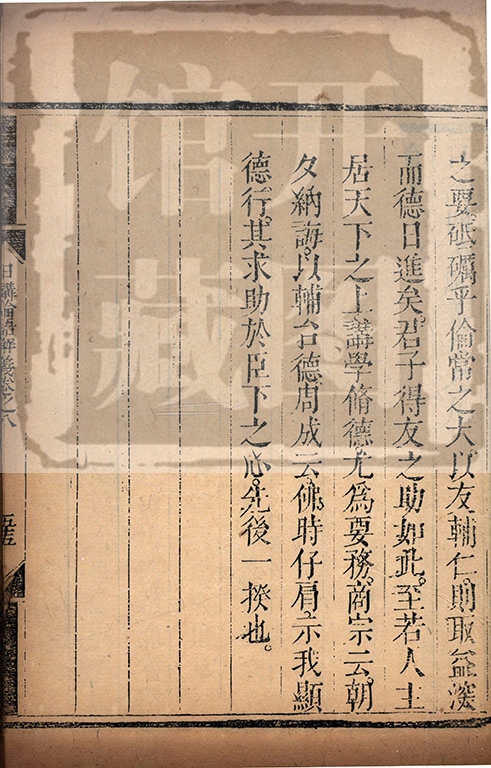 之要砥礪乎倫常之大以友輔仁則取益深
而德日進矣。君子得友之助如此。至若人主
居天下之上講學脩德尤爲要務。商宗云。朝
夕納誨。以輔台德。周成云。佛時仔肩。示我顯
德行。其求助於臣下之心。先後一揆也。
日講論語解義卷之八
五
館藏